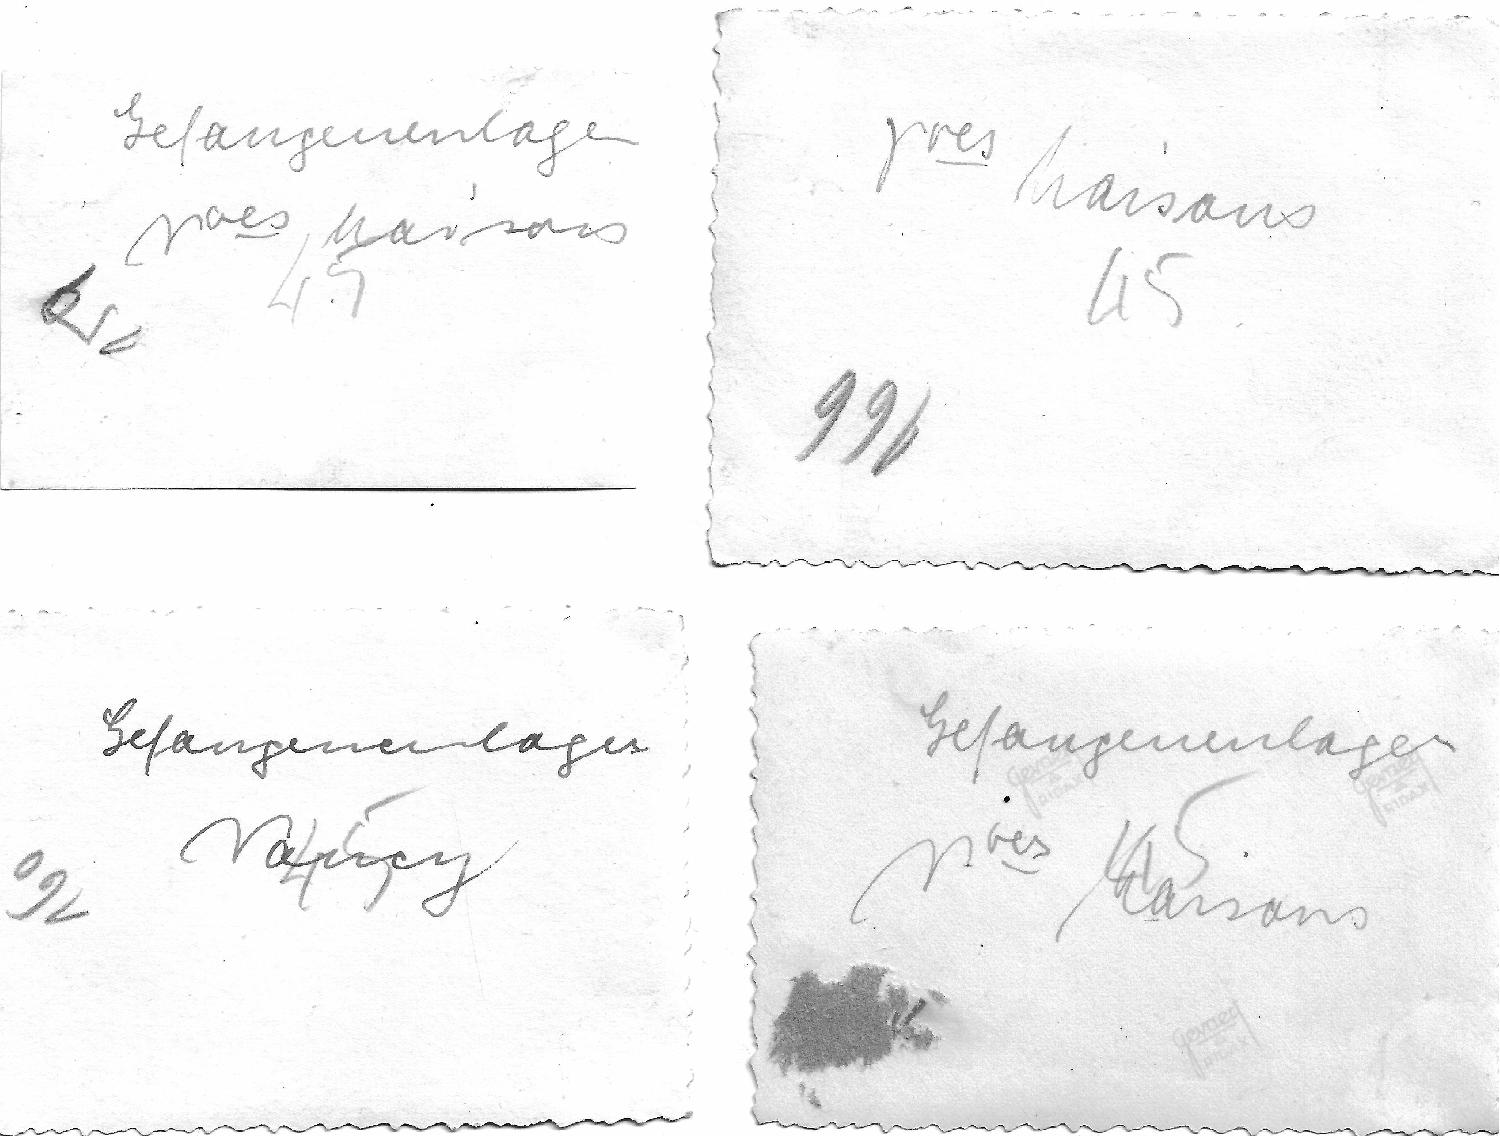 Gefangenenlager
pres Maisons
45
pres Maisons
45
99b
Gefangenenlager
Nancy
45
Gefangenenlager
pres Maisons
45
Gevaert
RIDAX
Gevaert
RIDAX
Gevaert
RIDAX